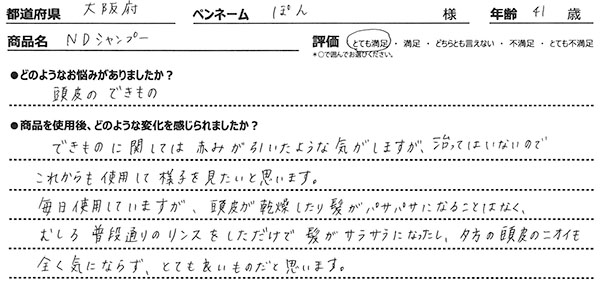 都道府県 大阪府 ペンネーム ぽん 様 年齢 41 歳
商品名 NDシャンプー 評価 とても満足 ・ 満足 ・ どちらとも言えない ・ 不満足 ・ とても不満足
*○で囲んでお選びください。
●どのようなお悩みがありましたか？
頭皮の できもの
●商品を使用後、どのような変化を感じられましたか？
できものに関しては 赤みが引いたような気がしますが、治ってはいないので
これからも使用して様子を見たいと思います。
毎日使用していますが、頭皮が乾燥したり髪がパサパサになることはなく、
むしろ 普段通りのリンスをしただけで 髪がサラサラになったし、夕方の頭皮のニオイも
全く気にならず、とても良いものだと思います。